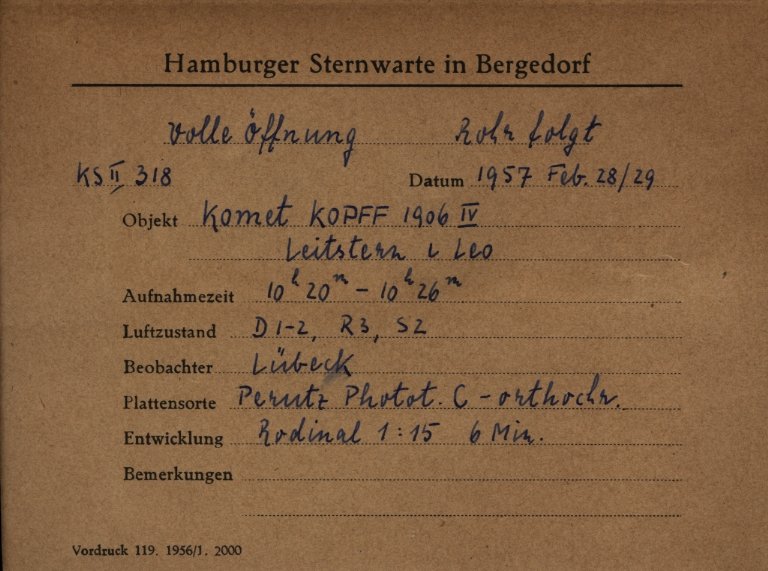 Hamburger Sternwarte in Bergedorf
Volle Öffnung Rohr folgt
KS II 318 Datum 1957 Feb. 28/29
Objekt Komet KOPFF 1906 IV
Leitstern ι Leo
Aufnahmezeit 10h 20m – 10h 26m
Luftzustand D1-2, R3, S2
Beobachter Lübeck
Plattensorte Perutz Photot. C - orthochr.
Entwicklung Rodinal 1:15 6 Min.
Bemerkungen
Vordruck 119. 1956/1. 2000